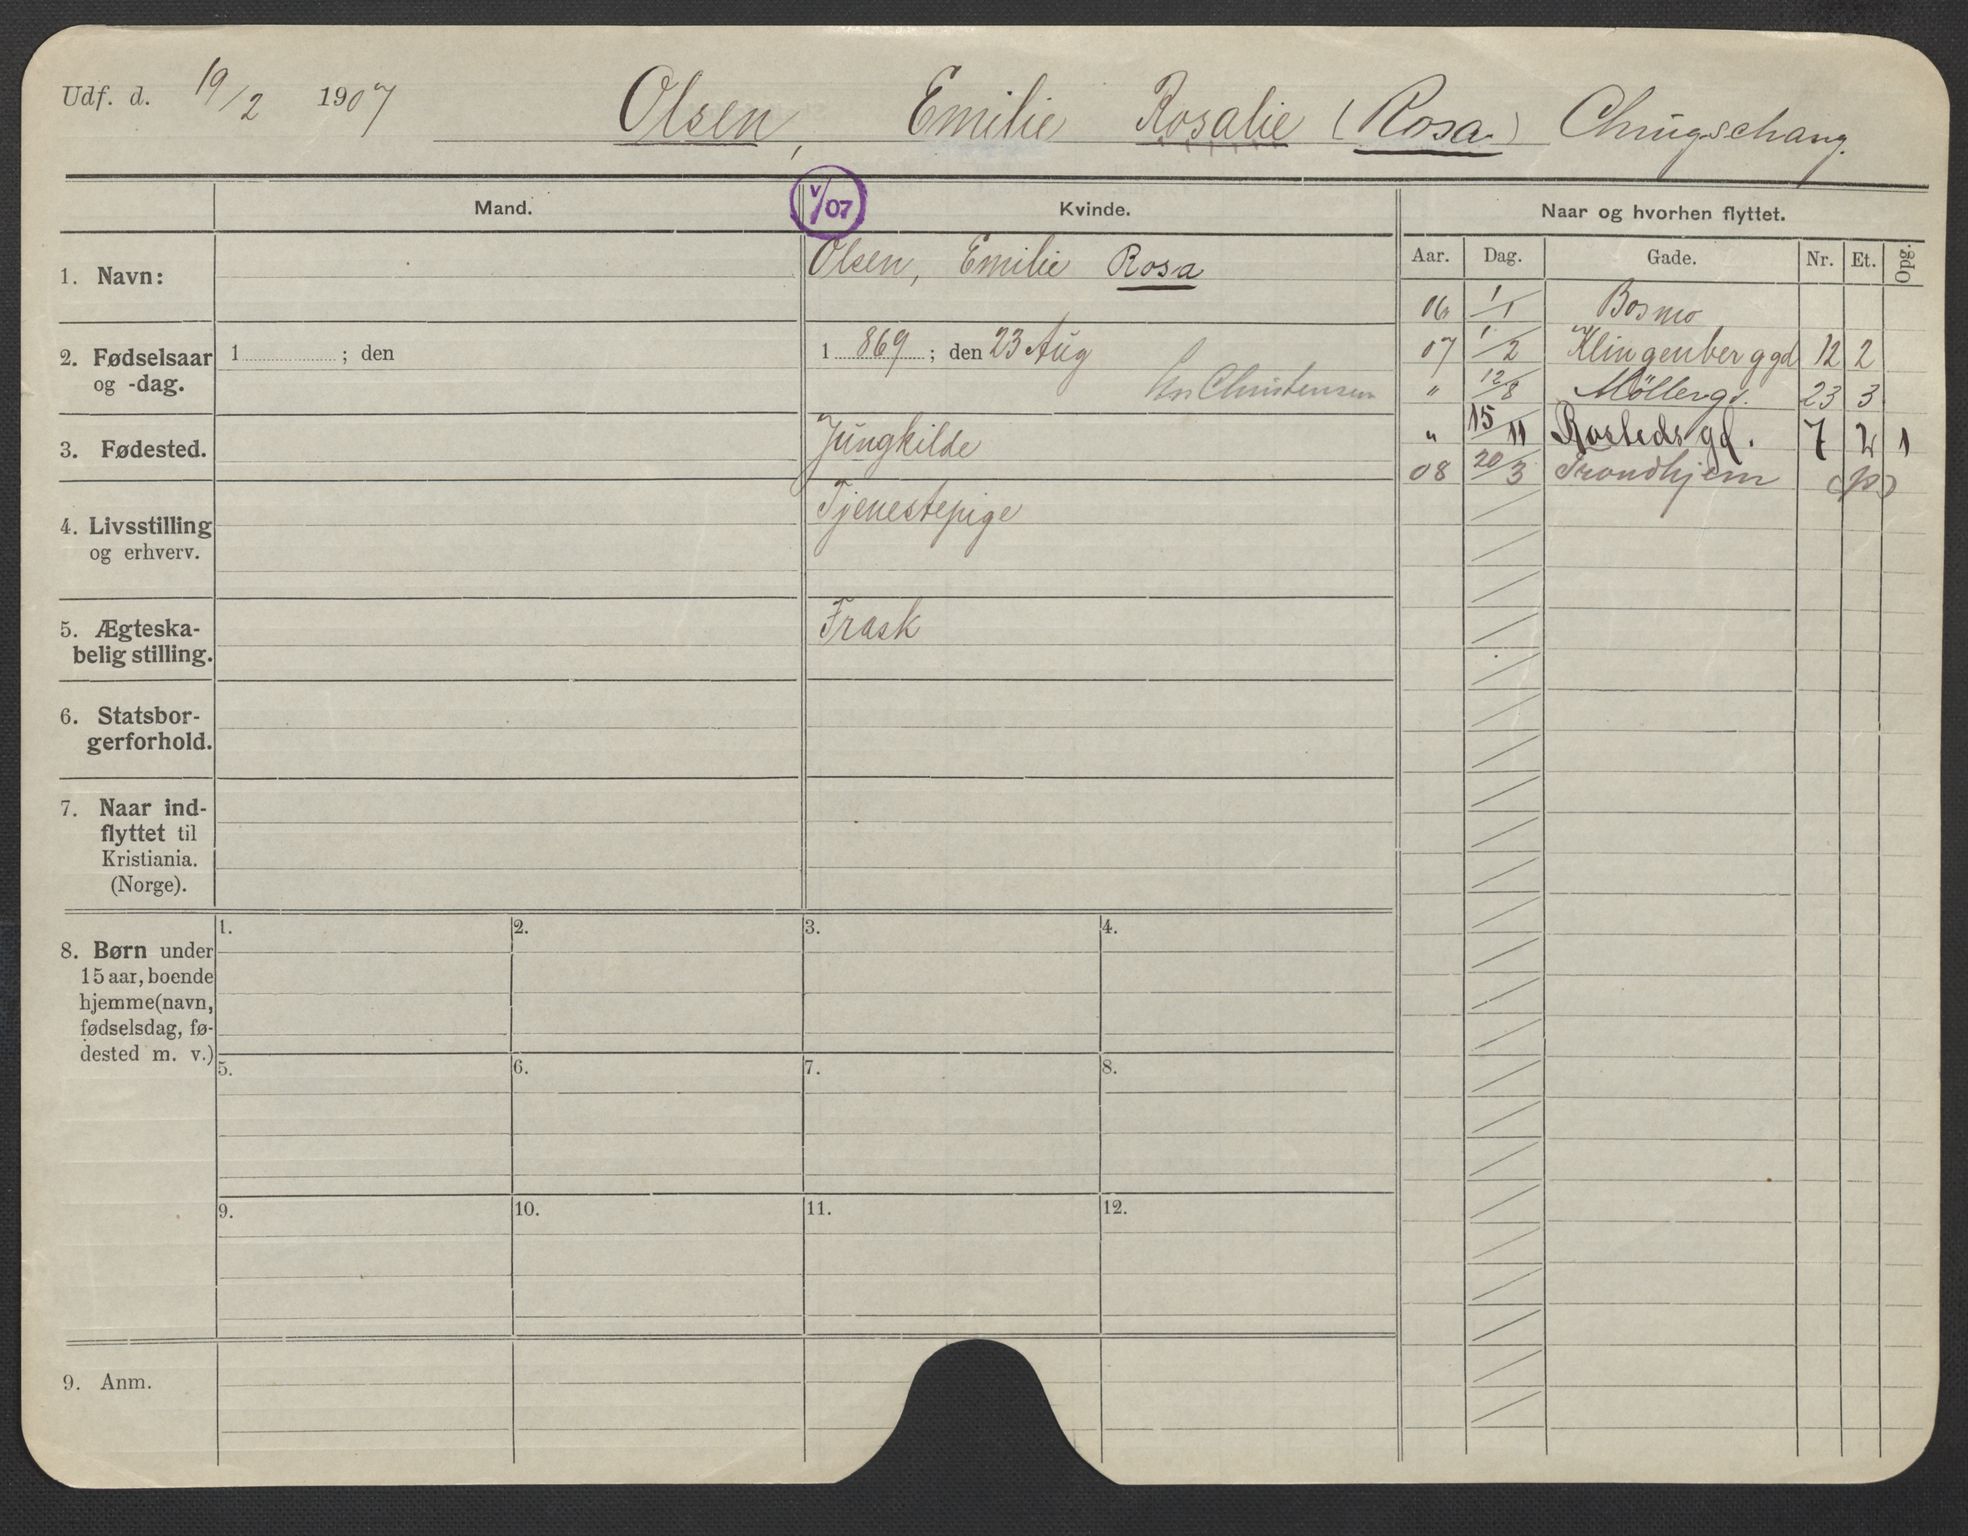 Udf. d. 19/2 1907 Olsen, Emilie Rosalie (Rosa)
Mand. V/07 Kvinde. Naar og hvorhen flyttet.
Aar. Dag. Gade. Nr. Et. Opg.
1. Navn: Olsen, Emilie Rosa
2. Fødselsaar og -dag. 1 ; den 1 869 ; den 23 Aug
Christensen
3. Fødested. Jungkilde
4. Livsstilling og erhverv. Tjenestepige
5. Ægteska-
belig stilling. Frask
6. Statsbor-
gerforhold.
7. Naar ind-
flyttet til
Kristiania.
(Norge).
8. Børn under
15 aar, boende
hjemme (navn,
fødselsdag, fø-
dested m. v.)
1. 2. 3. 4.
5. 6. 7. 8.
9. 10. 11. 12.
9. Anm.
06 1/1 Bosmo
07 1/2 Klingenberggd 12 2
" 12/8 Møllergd. 23 3
" 15/11 Rostedsgd. 7 2 1
08 20/3 Trondhjem (p)